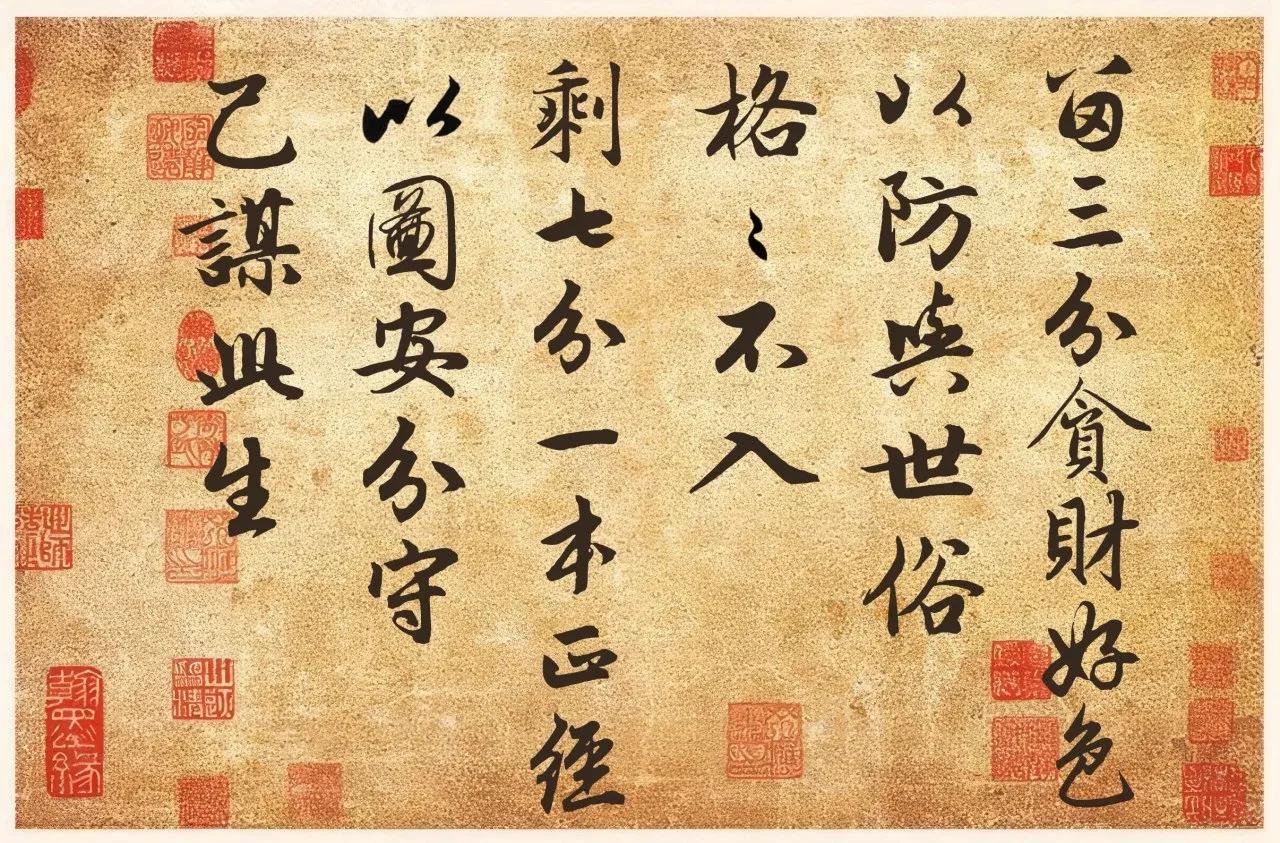 留三分貪財好色
以防與世俗
格〻不入
剩七分一本正經
以圖安分守
己謀此生
翰墨緣